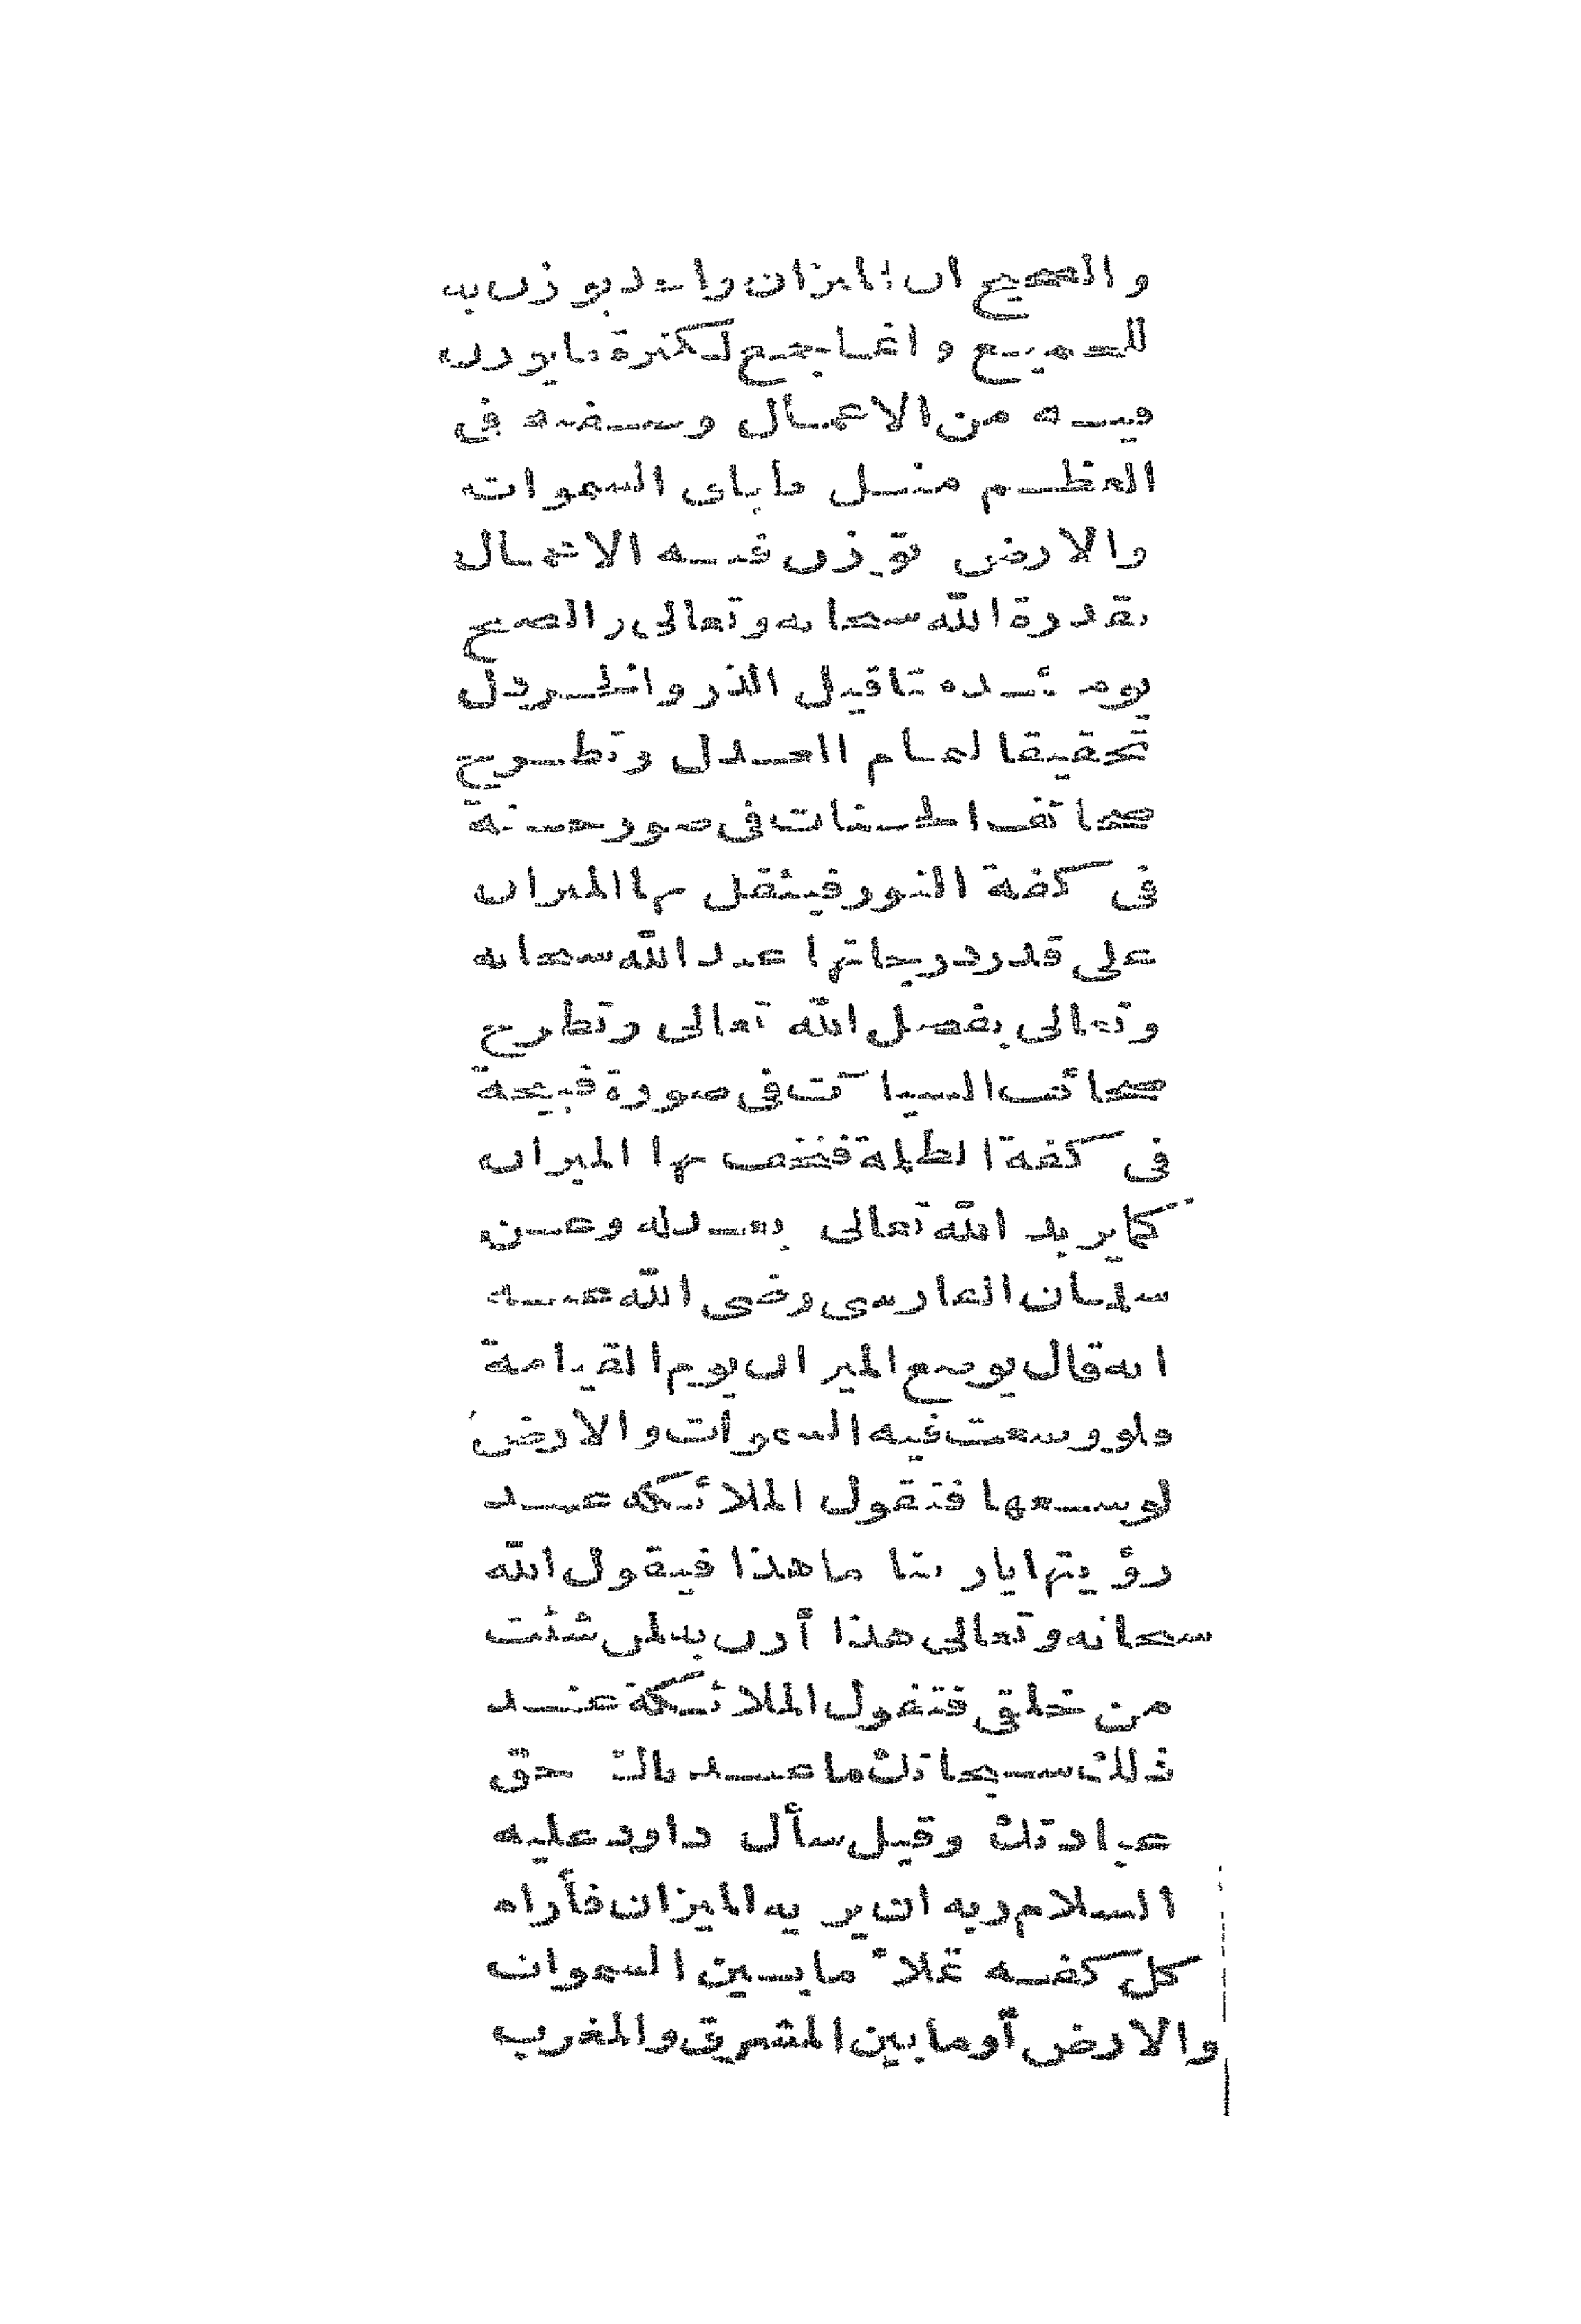 والصحيح ان الميزان واحد يوزن به
للجميع وانما جمع لكثرة ما يوزن
فيه من الاعمال وصفته في
العظم مثل طباق السموات
والارض توزن فيه الاعمال
بقدرة الله سبحانه وتعالى والصنج
يومئذ مثاقيل الذر والخردل
تحقيقا لتمام العدل وتطرح
صحائف الحسنات في صور حسنة
في كفة النور فيثقل بها الميزان
على قدر درجاتها عند الله سبحانه
وتعالى بفضل الله تعالى وتطرح
صحائف السيآت في صورة قبيحة
في كفة الظلمة فيخف بها الميزان
كما يريد الله تعالى بعدله وعن
سلمان الفارسى رضى الله عنه
انه قال يوضع الميزان يوم القيامة
ولو وسعت فيه السموات والارض
لوسعها فتقول الملائكة عند
رؤيتها يا ربنا ما هذا فيقول الله
سبحانه وتعالى هذا أزن به لمن شئت
من خلقى فتقول الملائكة عند
ذلك سبحانك ما عبدناك حق
عبادتك وقيل سأل داود عليه
السلام ربه ان يريه الميزان فأراه
كل كفة تملأ ما بين السموات
والارض أو ما بين المشرق والمغرب